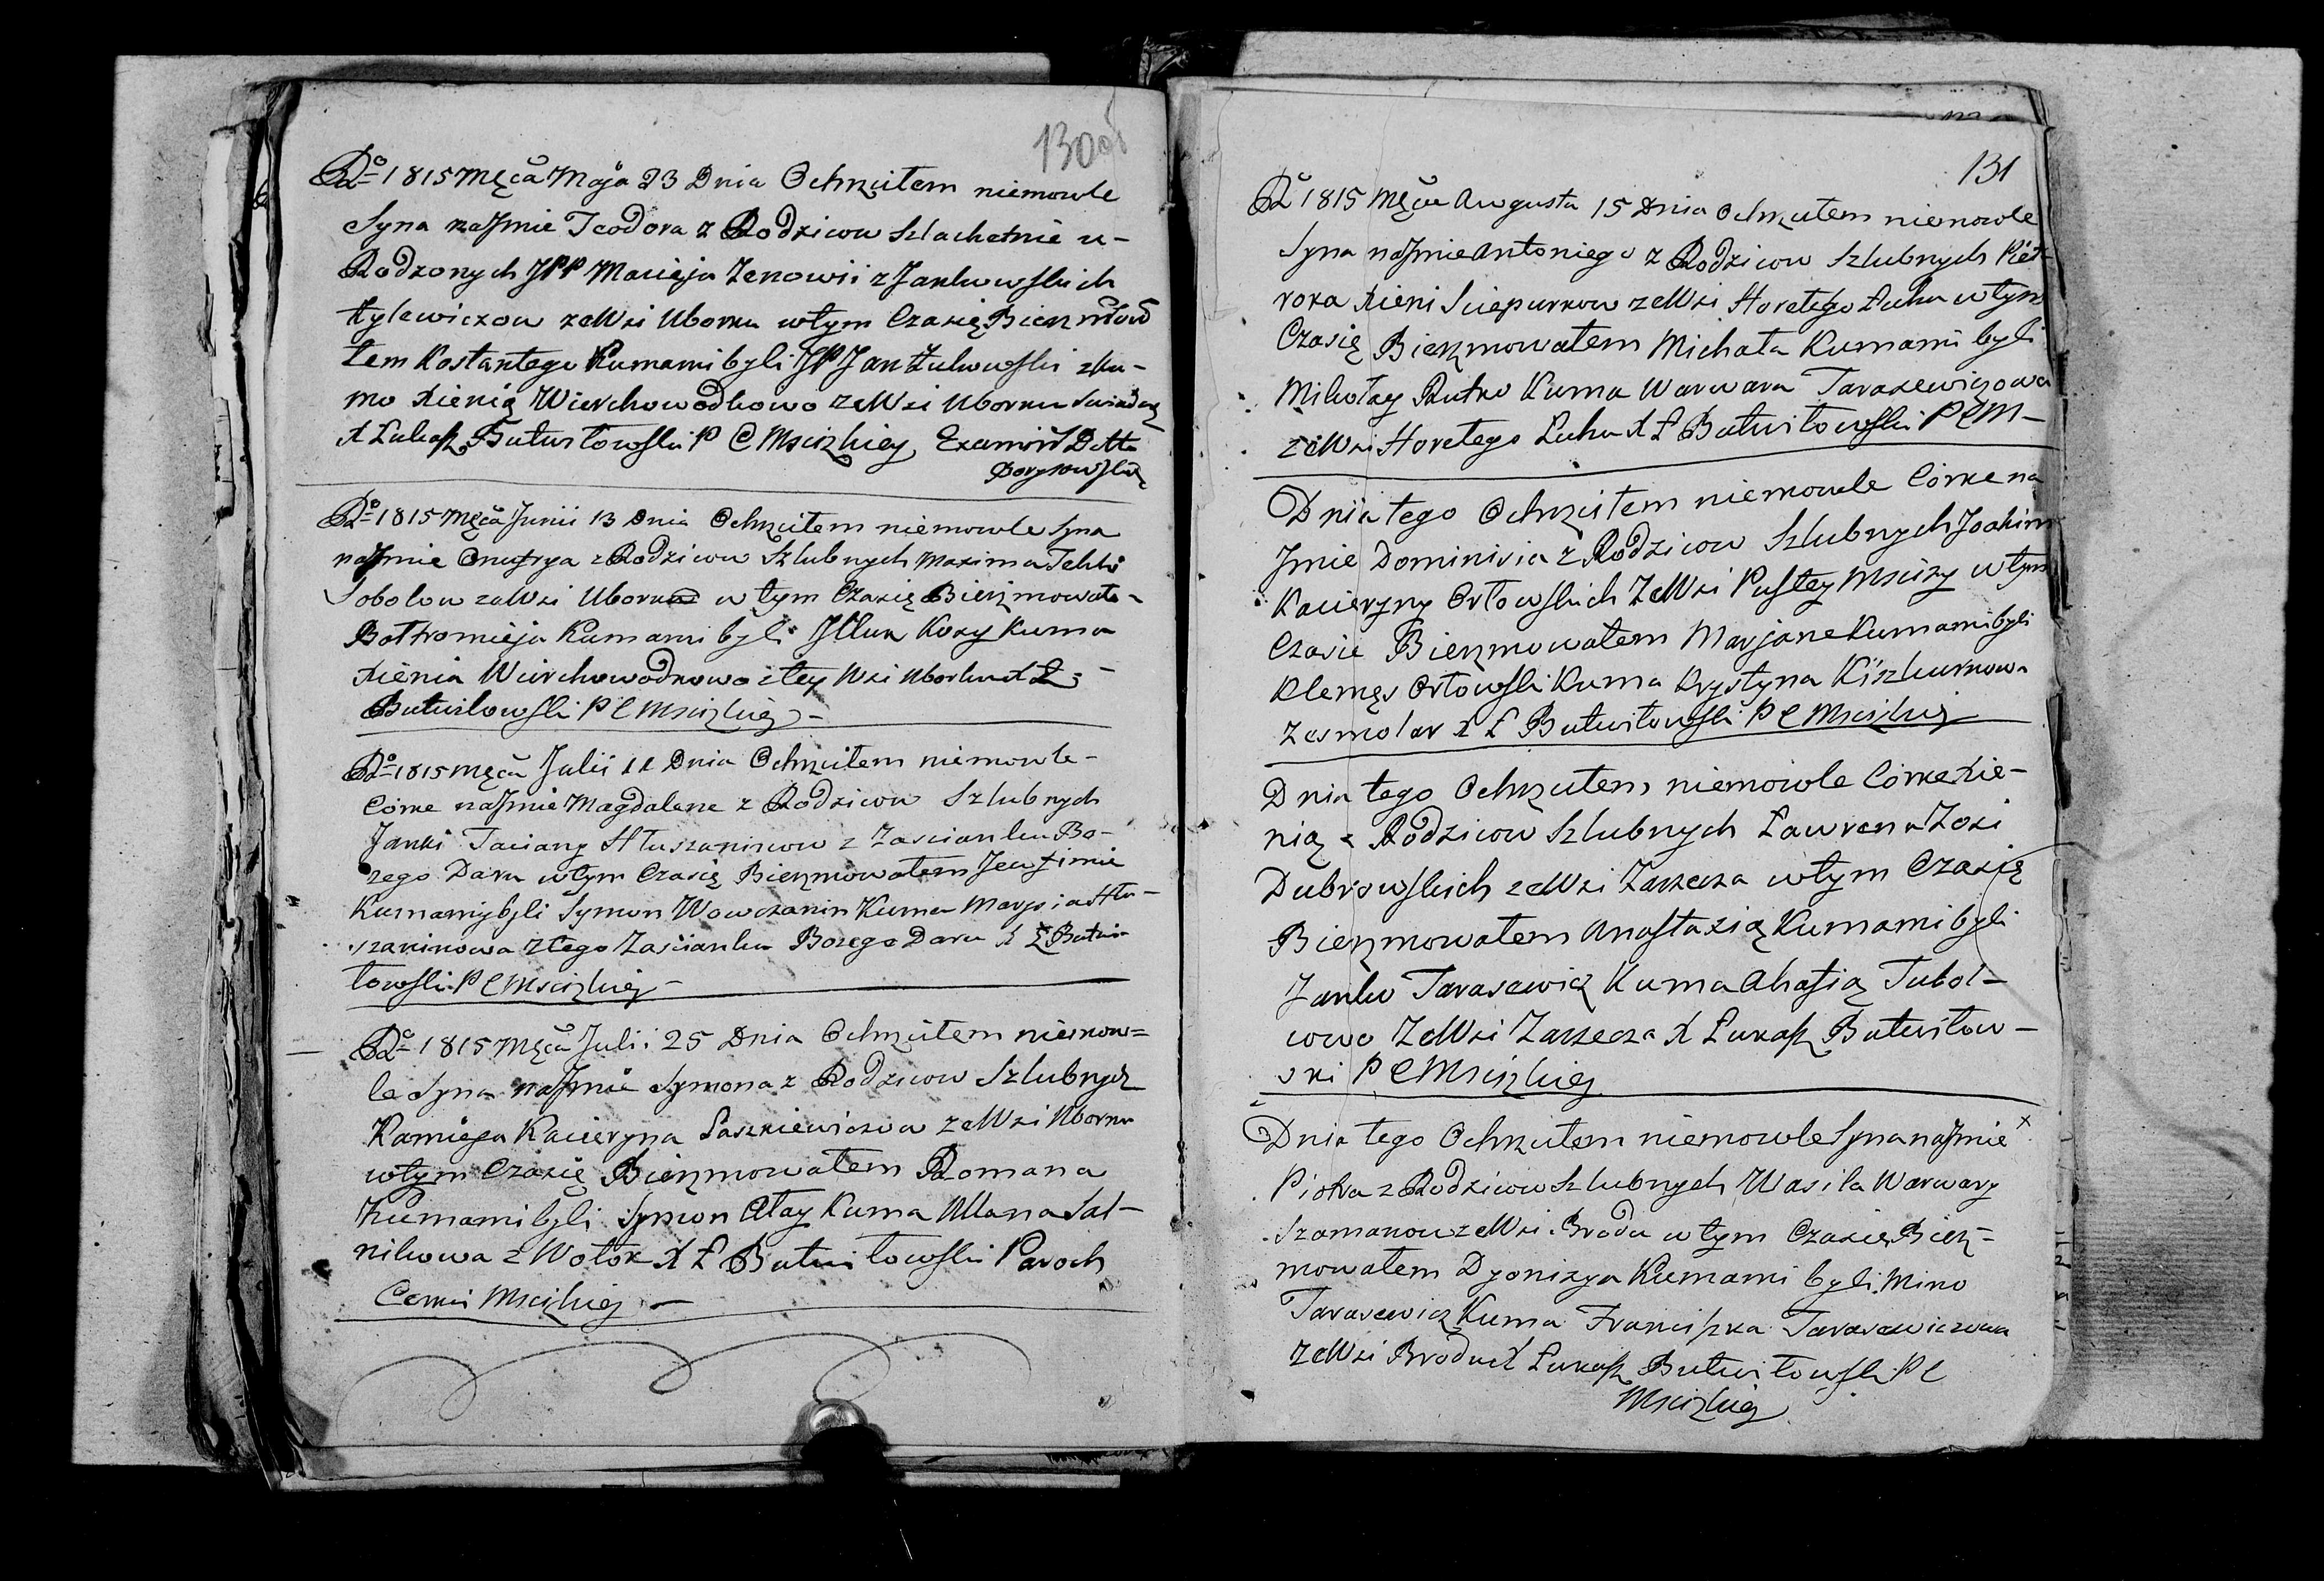 130об
Rº 1815 Męca Maja 23 Dnia Ochrzciłem niemowle
Syna na Jmie Teodora z Rodzicow Szlachetnie u-
Rodzonych JPP Macieja Zenowii z Jankowskich
Kylewiczow ze Wsi Uborku w tym Czasię Bierzmowa
łem Kostantego Kumami byli JP Jan Żukowski z ku-
mo Xienią Wierchowodkowo ze Wsi Uborku Swiadczę
X Łukasz Butwiłowski P C Msciżkiey Examin D
Borysowski
Rº 1815 Męca Junii 13 Dnia Ochrzciłem niemowle Syna
na Jmie Onufrya z Rodzicow Szlubnych Maxima Tekli
Sobolow ze Wsi Uborku w tym Czasię Bierzmowałe-
Bołtromieja Kumami byli Jllux Kozy Kuma
Xienia Wierchowodkowa z tey Wsi Uborku X Ł
Butwiłowski P C Msciżkiey -
Rº 1815 Męca Julii 11 Dnia Ochrzciłem niemowle-
Corke na Jmie Magdalene z Rodzicow Szlubnych
Janki Taciany Hłuszanincow z Zascianku Bo-
zego Daru w tym Czasię Bierzmowałem Jewfimie
Kumamy byli Symon Wowczanin Kuma Marjsia Hłu-
szaninowa z tego Zaścianku Bozego Daru X Ł Butwi-
łowski P C Msciżkiey -
Rº 1815 Męca Julii 25 Dnia Ochrzciłem niemow=
le Syna na Jmie Symona z Rodzicow Szlubnych
Kamieja Kacieryna Laszkiewiczow ze Wsi Uborku
w tym Czasię Bierzmowałem Romana
Kumami byli Symon Ałay Kuma Ullana Sal-
nikowa z Wołok X Ł Butwiłowski Paroch
Cerkwi Msciżkiey -
131
Rº 1815 Męca Augusta 15 Dnia Ochrzciłem niemowle
Syna na Jmie Antoniego z Rodzicow Szlubnych Piet-
roxa Xieni Sciepurkow ze Wsi Horełego Łuhu w tym
Czasię Bierzmowałem Michała Kumami byli
Mikołay Rutko Kuma Warwara Tarasewiczowa
ze Wsi Horełego Łuhu X Ł Butwiłowski P C M-
Dnia tego Ochrzciłem niemowle Corke na
Jmie Dominisia z Rodzicow Szlubnych Joakim
Kacieryny Orłowskich ze Wsi Pustey Msciży w tym
Czasie Bierzmowałem Marjane Kumami byli
Klemęs Orłowski Kuma Krystyna Kiszkurnowa
z Osmolar X Ł Butwiłowski P C Msciżkiey
Dnia tego Ochrzciłem niemowle Corke Xie-
nią z Rodzicow Szlubnych Ławrena Zosi
Dubrowskich ze Wsi Zarzecza w tym Czasię
Bierzmowałem Anastazią Kumami byli
Janko Tarasewicz Kuma Ahafią Tubol-
cowo ze Wsi Zarzecza X Łukasz Butwiłow-
ski P C Msciżkiey
Dnia tego Ochrzciłem niemowle Syna na Jmie
Piotra z Rodzicow Szlubnych Wasila Warwary
Szamanow ze Wsi Brodu w tym Czasie Bierz-
mowałem Dyonizya Kumami byli Mino
Tarasewicz Kuma Franciszka Tarasewiczowa
ze Wsi Brodu X Łukasz Butwiłowski P C
Msciżkiey